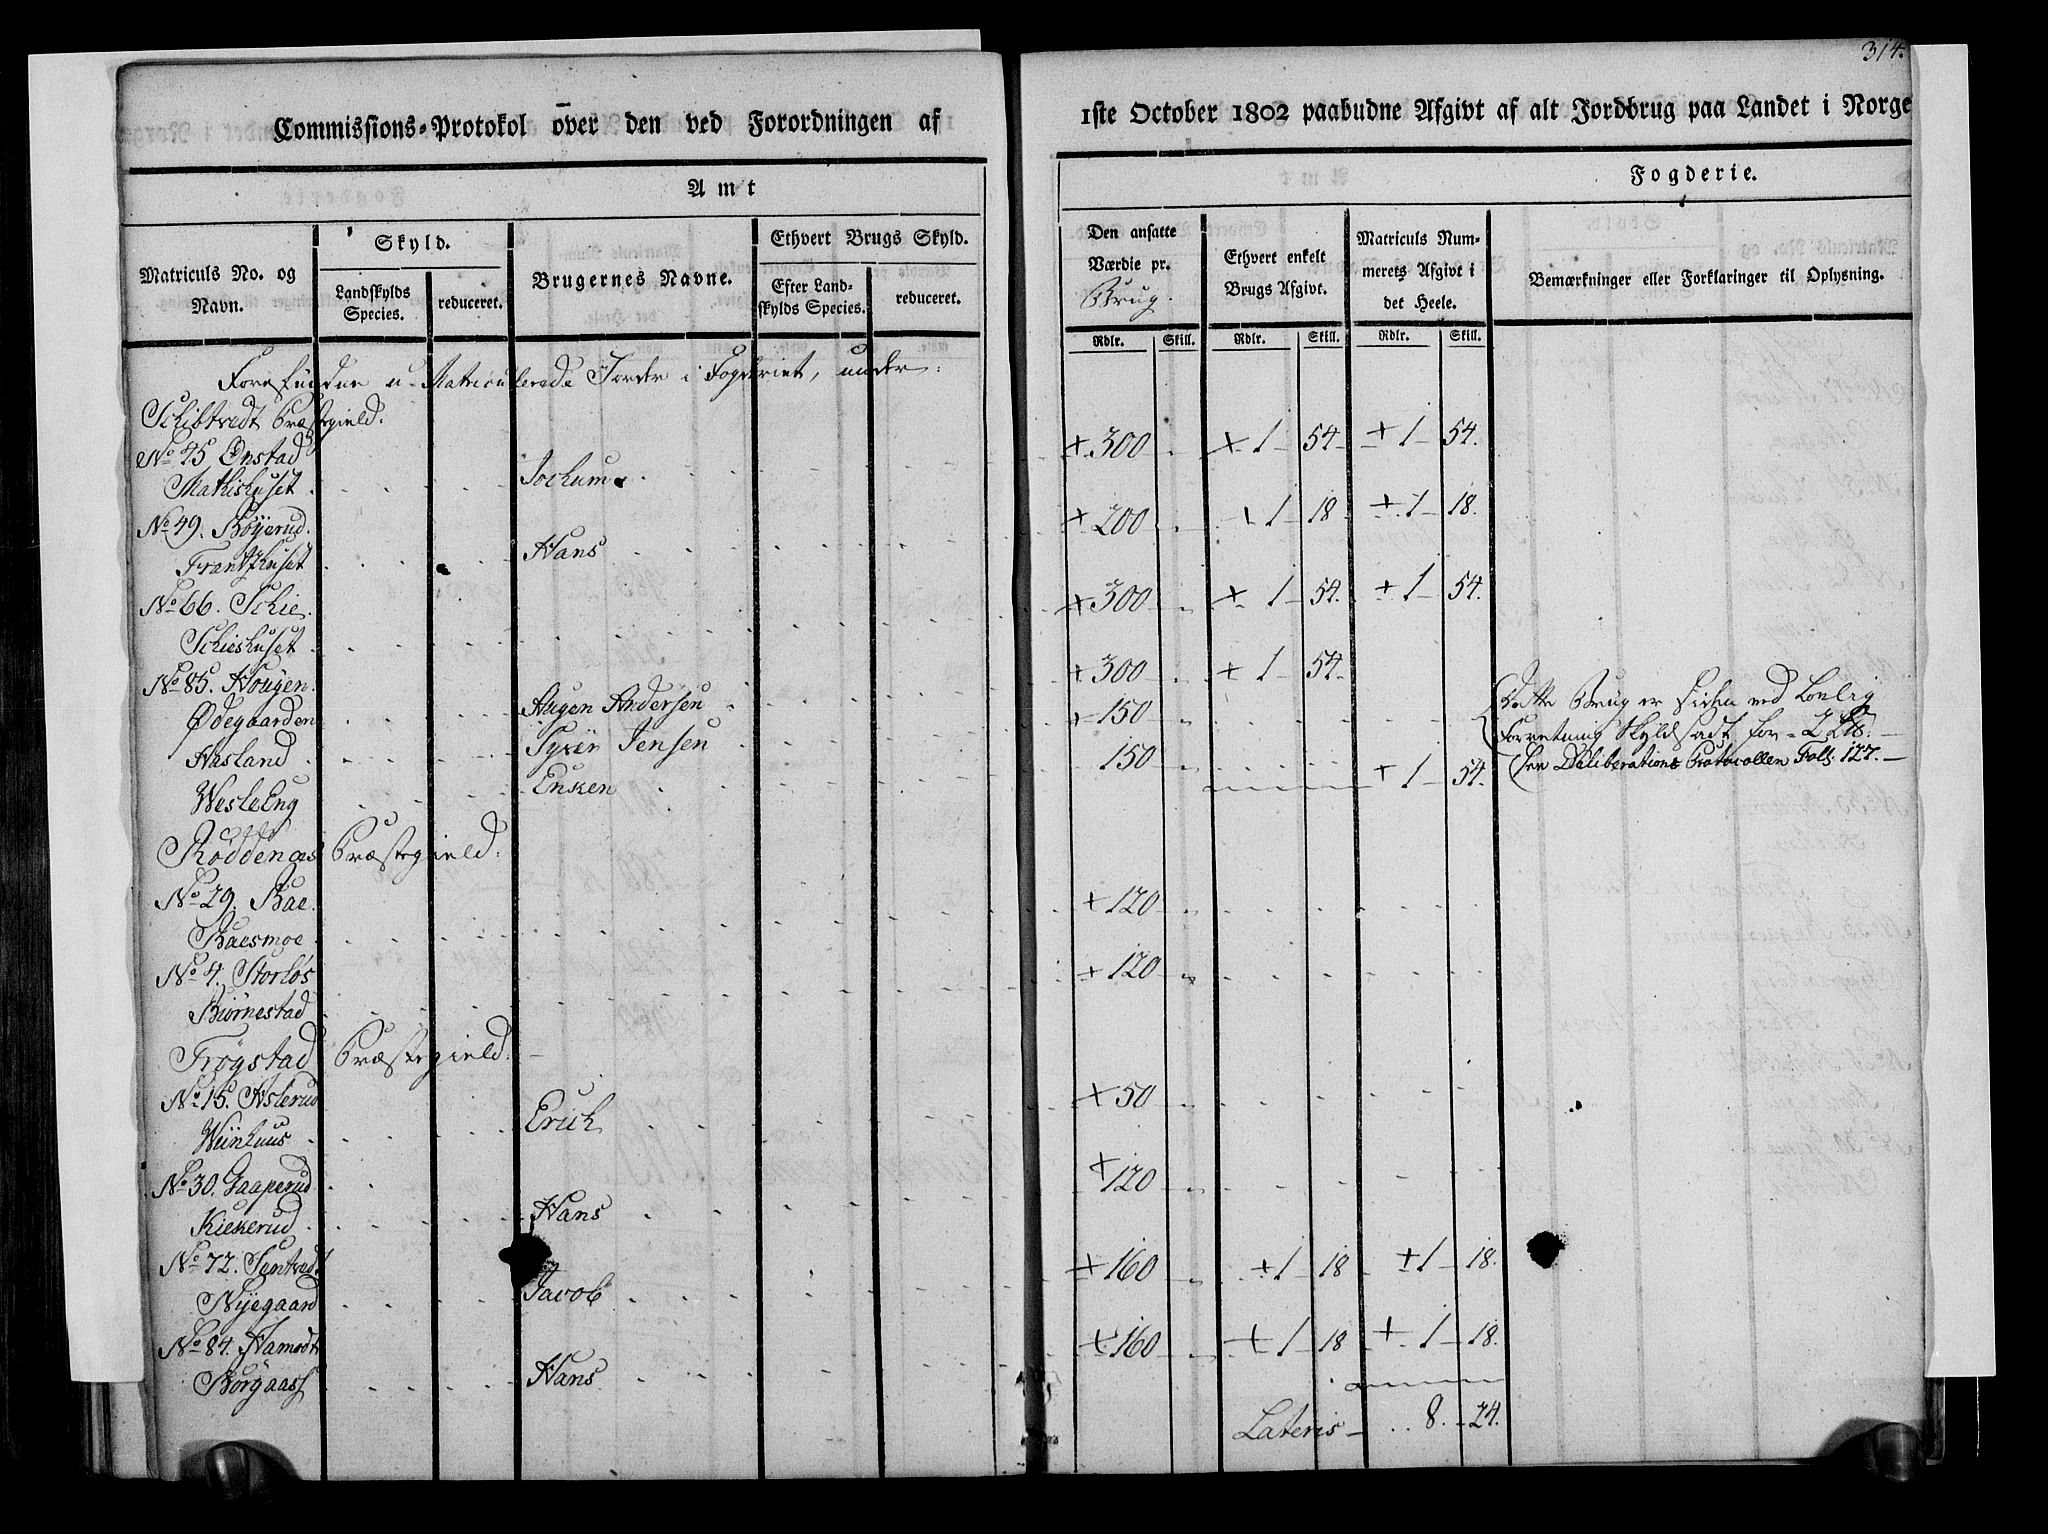 314.
Commissions-Protokol over den ved Forordningen af
1ste October 1802 paabudne Afgivt af alt Jordbrug paa Landet i Norge
Amt
Fogderie.
Matriculs No. og Navn.
Skyld.
Landskylds Species.
reduceret.
Brugernes Navne.
Ethvert Brugs Skyld.
Efter Landskylds Species.
reduceret.
Den ansatte Værdie pr. Brug.
Ethvert enkelt Brugs Afgivt.
Matriculs Nummerets Afgivt i det Heele.
Bemærkninger eller Forklaringer til Oplysning.
Rdlr. Skill. Rdlr. Skill. Rdlr. Skill.
Forefundne u-Matriculerede Jorder i Fogderiet, under:
Schibtvedt Præstegield.
No 45 Onstad
Mathishuset Jochum + 300 + 1 54 + 1 54.
No 49. Böyerud.
Frantzhuset Hans + 200 + 1 18 + 1 18.
No 66. Schie.
Schieshuset + 300 + 1 54. + 1 54.
No 85. Hougen.
Ødegaarden Augen Andersen + 300 + 1 54.
Hasland Syver Jensen + 150
Wesle Eng Enken 150 + 1 54.
Dette Brug er siden ved Lovlig
Forretning Skyldsadt for
See Deliberations Protocollen Fol. 127.
Röddenæs Præstegield.
No 29. Bae.
Baesmoe + 120
No 4. Storlös
Biörnestad + 120
Frögstad Præstegield.
No 15. Aslerud
Weinhuus Erich + 50
No 30. Gaaperud
Kiekerud Hans + 120
No 72. Sentvedt
Nyegaard Jacob + 160 + 1 18 + 1 18.
No 84. Hamodt
Borgaass Hans + 160 + 1 18 + 1 18.
Lateris 8. 24.